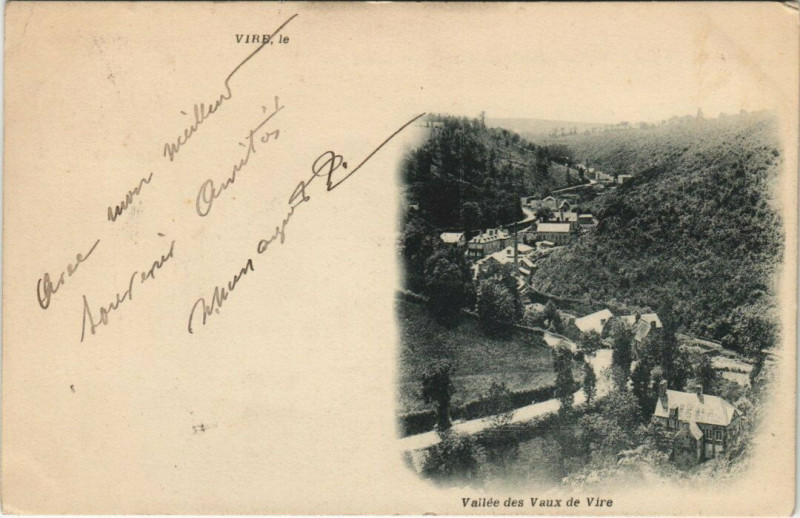 VIRE, le
Avec mon meilleur
souvenir Amitiés
Vallée des Vaux de Vire